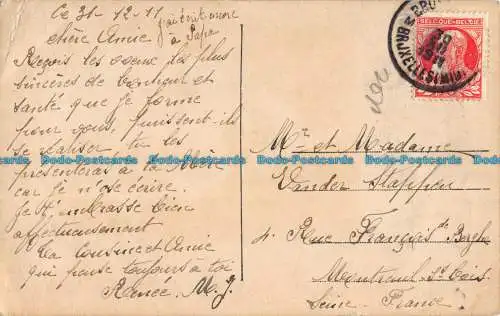 Ce 31-12-11
j'ai écrit encore
à Papa
chère Amie
Reçois les voeux les plus
sincères de bonheur et
santé que je forme
pour vous, puissent-ils
se réaliser tu les
présenteras à ta Mère
car je n'ose écrire.
Je t'embrasse bien
affectueusement
Ta Cousine et Amie
qui pense toujours à toi
Renée. M. J.
BRUXELLES (MIDI)
BELGIQUE-BELGIË
Mr et Madame
Vander Stappen
4. Rue François de Bergue
Montreuil s/s Bois
Seine. France
Dodo-Postcards Dodo-Postcards Dodo-Postcards Dodo-Postcards Dodo-Postcards Dodo-Postcards